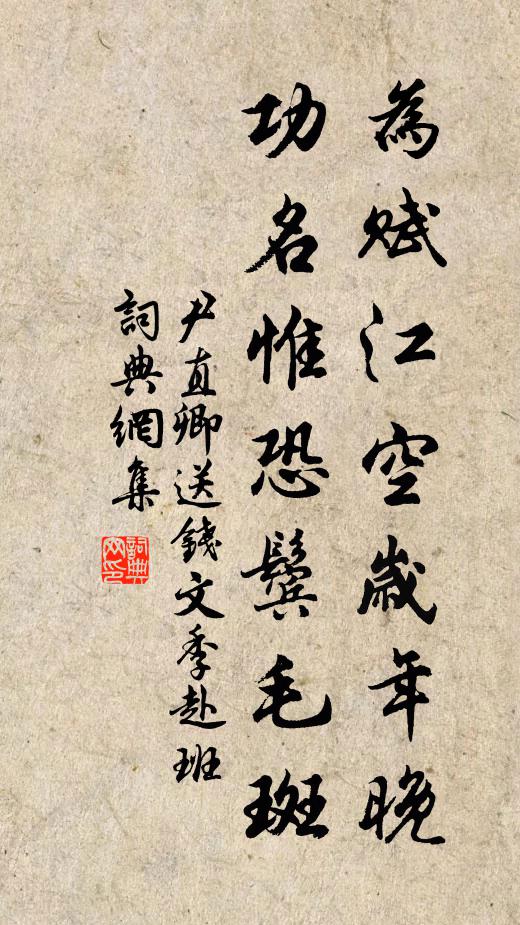 為賦江空歲年晚
功名惟恐鬢毛斑
尹直卿送錢文季赴班
詞典網集
詞典网印